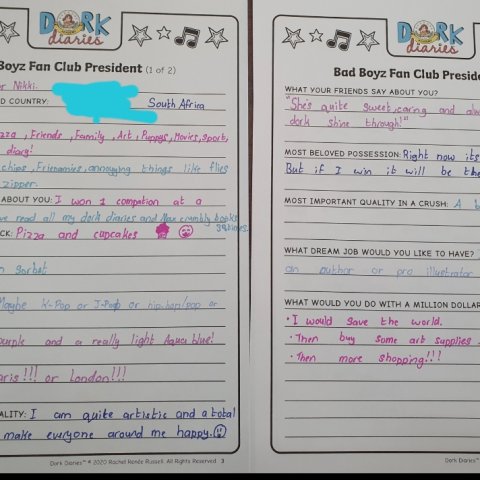 DORK
diaries
Boyz Fan Club President (1 of 2)
Nikki.
COUNTRY: South Africa
, Friends, Family, Art, Puppys, Movies, Sport,
diary!
, Frienamies, annoying things like flies
zipper.
ABOUT YOU: I won 1 compation at a
read all my dork diaries and Max crumbly books
Pizza and cupcakes
Sorbet
Maybe K-Pop or J-Pop or hip-hop/pop or
purple and a really light Aqua blue!
!!! or London!!!
I am quite artistic and a total
make everyone around me happy.
Dork Diaries™ © 2020 Rachel Renée Russell. All Rights Reserved. 3
DORK
diaries
Bad Boyz Fan Club Preside
WHAT YOUR FRIENDS SAY ABOUT YOU?
"She's quite sweet, caring and
dork shine through!"
MOST BELOVED POSSESSION: Right now its
But if I win it will be the
MOST IMPORTANT QUALITY IN A CRUSH: A
WHAT DREAM JOB WOULD YOU LIKE TO HAVE?
an author or pro illustrator
WHAT WOULD YOU DO WITH A MILLION DOLLAR
• I would save the world.
• Then buy some art supplies
• Then more shopping!!!
Dork Diaries™ © 20